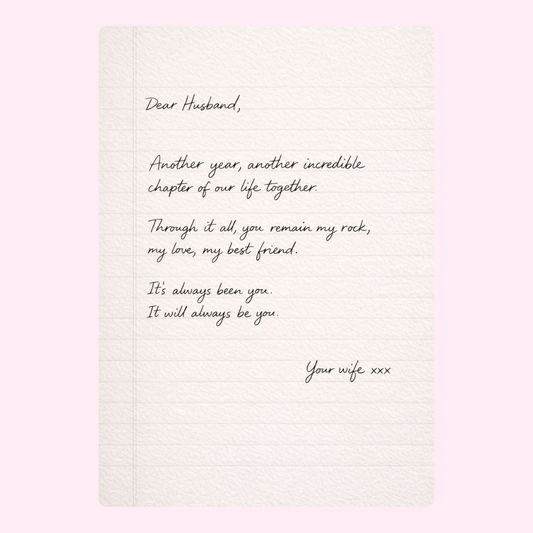 Dear Husband,
Another year, another incredible
chapter of our life together.
Through it all, you remain my rock,
my love, my best friend.
It's always been you.
It will always be you.
Your wife xxx